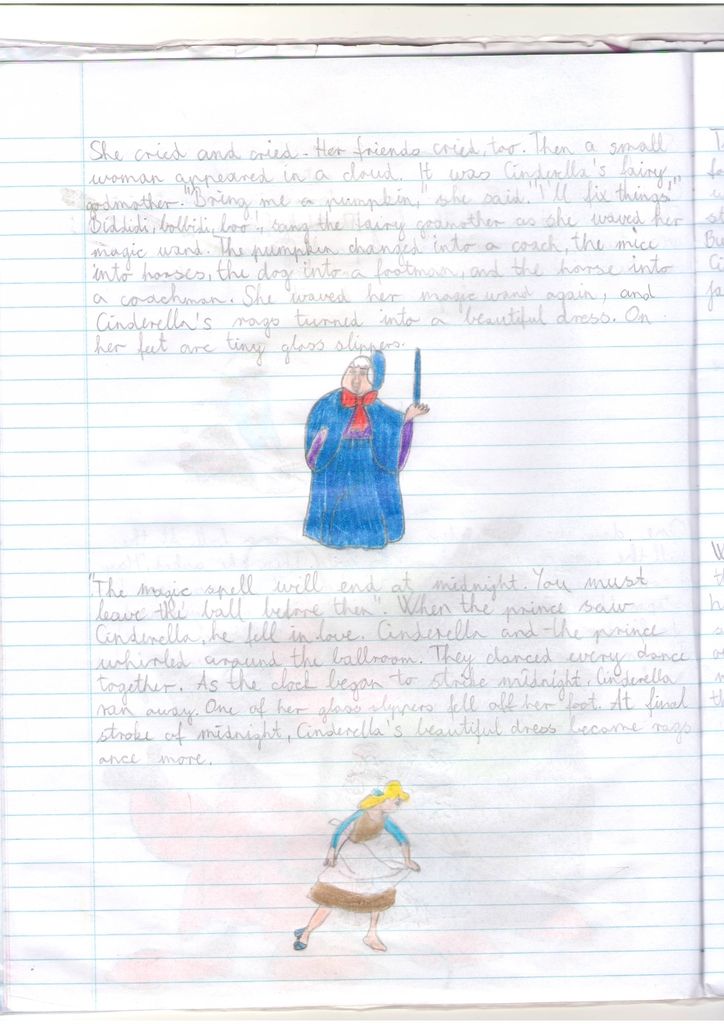 She cried and cried. Her friends cried, too. Then a small
woman appeared in a cloud. It was Cinderella's fairy
godmother. "Bring me a pumpkin," she said. "I'll fix things"
Biddidi, bobbidi, boo", sang the fairy godmother as she waved her
magic wand. The pumpkin changed into a coach, the mice
into horses, the dog into a footman, and the horse into
a coachman. She waved her magic wand again, and
Cinderella's rags turned into a beautiful dress. On
her feet are tiny glass slippers.
"The magic spell will end at midnight. You must
leave the ball before then". When the prince saw
Cinderella, he fell in love. Cinderella and the prince
whirled around the ballroom. They danced every dance
together. As the clock began to stroke midnight, Cinderella
ran away. One of her glass slippers fell off her foot. At final
stroke of midnight, Cinderella's beautiful dress became rags
once more.